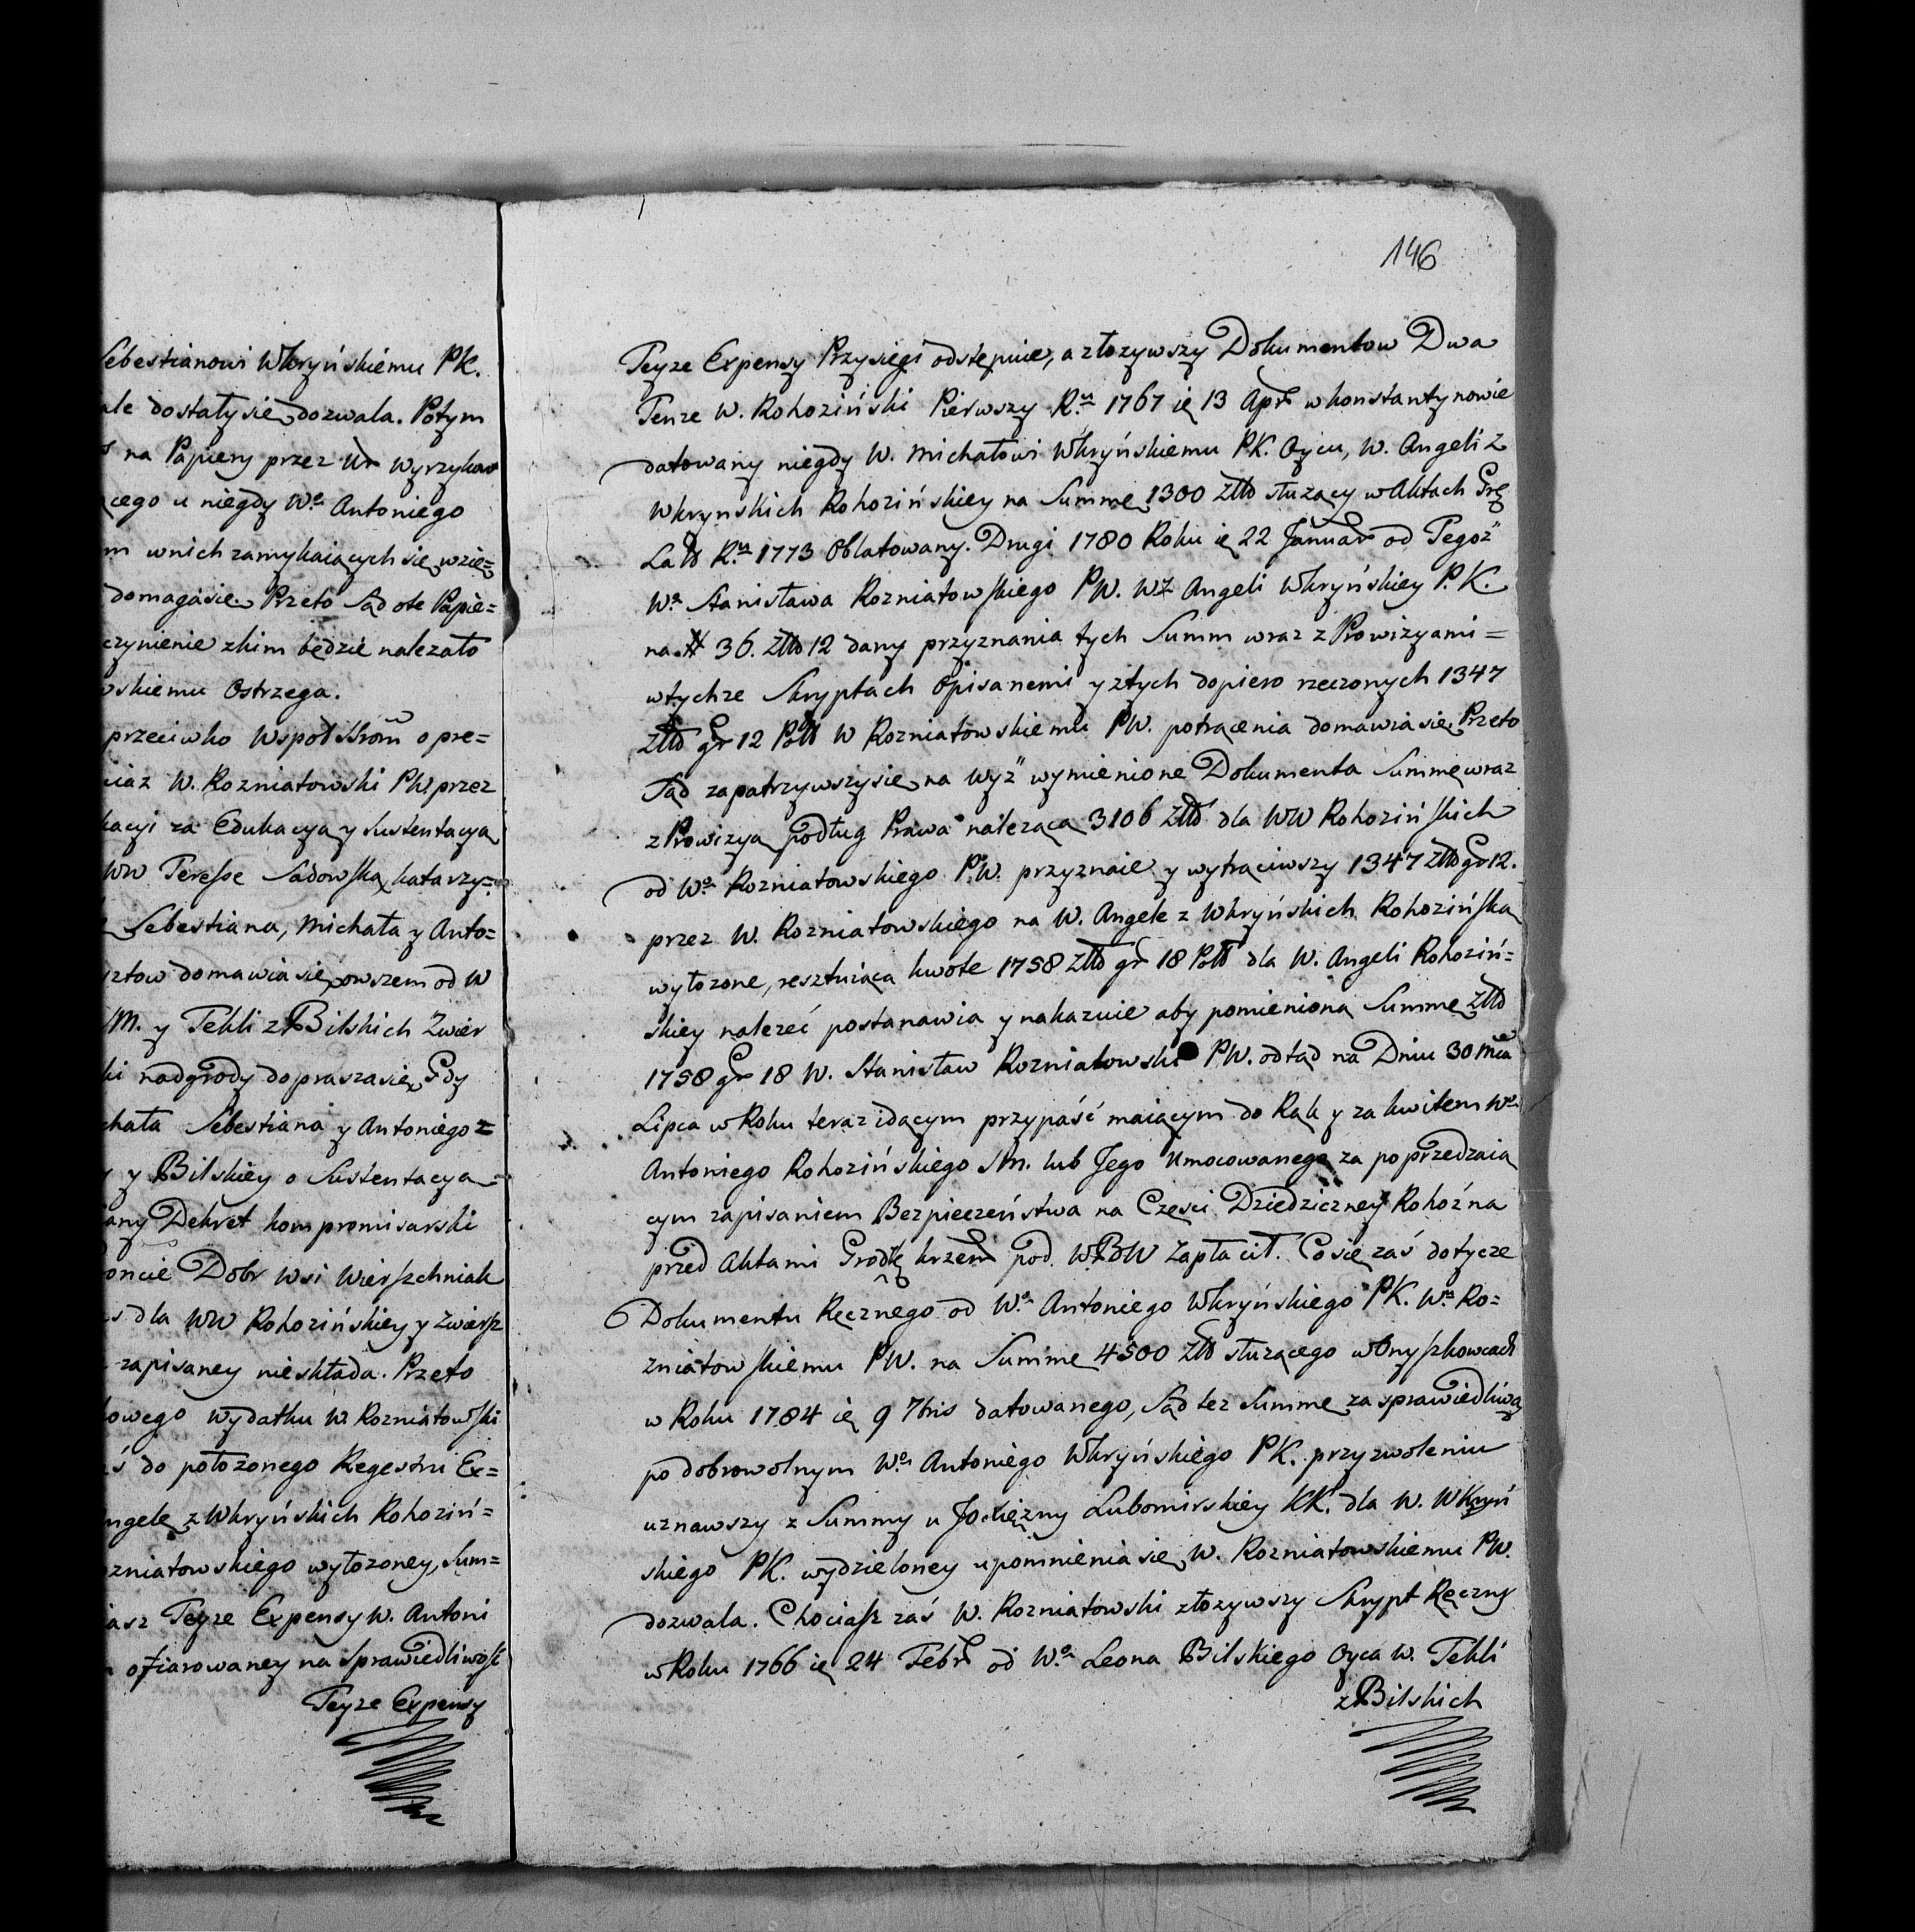 Sebestianowi Wkryńskiemu PK.
ale dostały się dozwala. Potym
na Papiery przez Ur Wyrzykow
ącego u niegdy Wº Antoniego
m w nich zamykaiących się wzie=
domaga się. Przeto Sąd o te Papie=
czynienie z kim będzie należało
wskiemu Ostrzega.
przeciwko Wspołstrom o pre=
iaz W. Rozniatowski PW. przez
kacyi za Edukacyą y Sustentacyą
WW Teresse Sadowską katarzy=
Sebestiana, Michała y Anto=
sztow domawia się owszem od W
M. y Tekli z Bilskich Zwier
ki nadgrody doprasza się Gdy
chała Sebestiana y Antoniego =
y Bilskiey o Sustentacyą =
any Dekret kompromisarski
oncie Dobr wsi Wierszchniak
s dla WW Rohozińskiey y Zwiersz
zapisaney nieskłada. Przeto
kowego wydatku W. Rozniatowski
ś do położonego Regestru Ex=
Angele z Wkryńskich Rohoziń=
ozniatowskiego wyłożoney, Sum=
iasz Teyze Expensy W. Antoni
ofiarowaney na Sprawiedliwość
Teyze Expensy
146
Teyze Expensy Przysięgi odstępuie, a złozywszy Dokumentow Dwa
Tenze W. Rohoziński Pierwszy R.u 1767 ię 13 Apr w konstantynowie
datowany niegdy W. Michałowi Wkryńskiemu PK. Oycu, W. Angeli z
Wkrynskich Rohozińskiey na Summę 1300 Złło służący w Aktach Grę
Lato R.u 1773 Oblatowany. Drugi 1780 Roku ię 22 Januar od Tegoż
Wº Stanisława Rozniatowskiego PW. WZ Angeli Wkryńskiey P.K.
na # 36. Złło 12 dany przyznania tych Summ wraz z Prowizyami =
w tychze Skryptach Opisanemi y z tych dopiero rzeczonych 1347
Złło gr 12 Poll W Rozniatowskiemu PW. potrącenia domawia się. Przeto
Sąd zapatrzywszy się na wyż wymienione Dokumenta Summę wraz
z Prowizyą podług Prawa należącą 3106 Złło dla WW Rohozińskich
od Wº Rozniatowskiego PW. przyznaie y wytrąciwszy 1347 Złło Gr 12.
przez W. Rozniatowskiego na W. Angele z Wkryńskich Rohozińską
wyłożone, resztuiącą kwotę 1758 Złło gr 18 Poll dla W. Angeli Rohoziń=
skiey należeć postanawia y nakazuie aby pomienioną Summę Złło
1758 gr 18 W. Stanisław Rozniatowski PW. odtąd na Dniu 30 mca
Lipca w Roku teraz idącym przypaść maiącym do Rąk y za kwitem Wº
Antoniego Rohozińskiego SM. lub Jego Umocowanego za poprzedzaią
cym zapisaniem Bezpieczeństwa na Częsci Dziedziczney Rohoźna
przed Aktami Grodzk krzem pod. W.BW Zapłacił. Co się zaś dotycze
Dokumentu Ręcznego od Wº Antoniego Wkryńskiego PK. W.u Ro=
zniatowskiemu PW. na Summę 4500 Złło służącego w Onyszkowcach
w Roku 1784 ię 9 7bris datowanego, Sąd tez Summę za sprawiedliwą
po dobrowolnym Wº Antoniego Wkryńskiego PK. przyzwoleniu
uznawszy z Summy u Jo Xiężny Lubomirskiey KK. dla W. Wkryń
skiego PK. wydzieloney upomnienia się W. Rozniatowskiemu PW.
dozwala. Chociasz zaś W. Rozniatowski złozywszy Skrypt Ręczny
w Roku 1766 ię 24 Febr od Wº Leona Bilskiego Oyca W. Tekli
z Bilskich